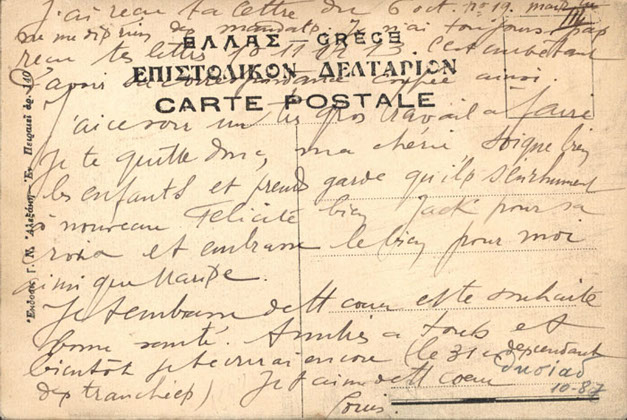 J'ai reçu ta lettre du 6 oct. no 19. mais tu
ne me dis rien du mandat. Je n'ai toujours pas
reçu tes lettres 10 11 12 13 C'est embêtant
ΕΛΛΑΣ - GRÈCE
ΕΠΙΣΤΟΛΙΚΟΝ ΔΕΛΤΑΡΙΟΝ
d'avoir
ainsi.
CARTE POSTALE
J'ai ce soir un très gros travail à faire
Je te quitte donc, ma chérie soigne bien
les enfants et prends garde qu'ils s'enrhument
à nouveau Félicite bien Jack pour sa
et embrasse le bien pour moi
ainsi que
Je t'embrasse de tt coeur et te souhaite
bonne santé. Amitiés à tous et
bientôt je t'écrirai encore (le 31 cependant
des tranchées) Je t'aime de tt coeur
Louis.
10-87
Ἐκδόσεις Γ. Ν. Ἀλεξάκη—Ἐν Πειραιεῖ ἀρ. 140